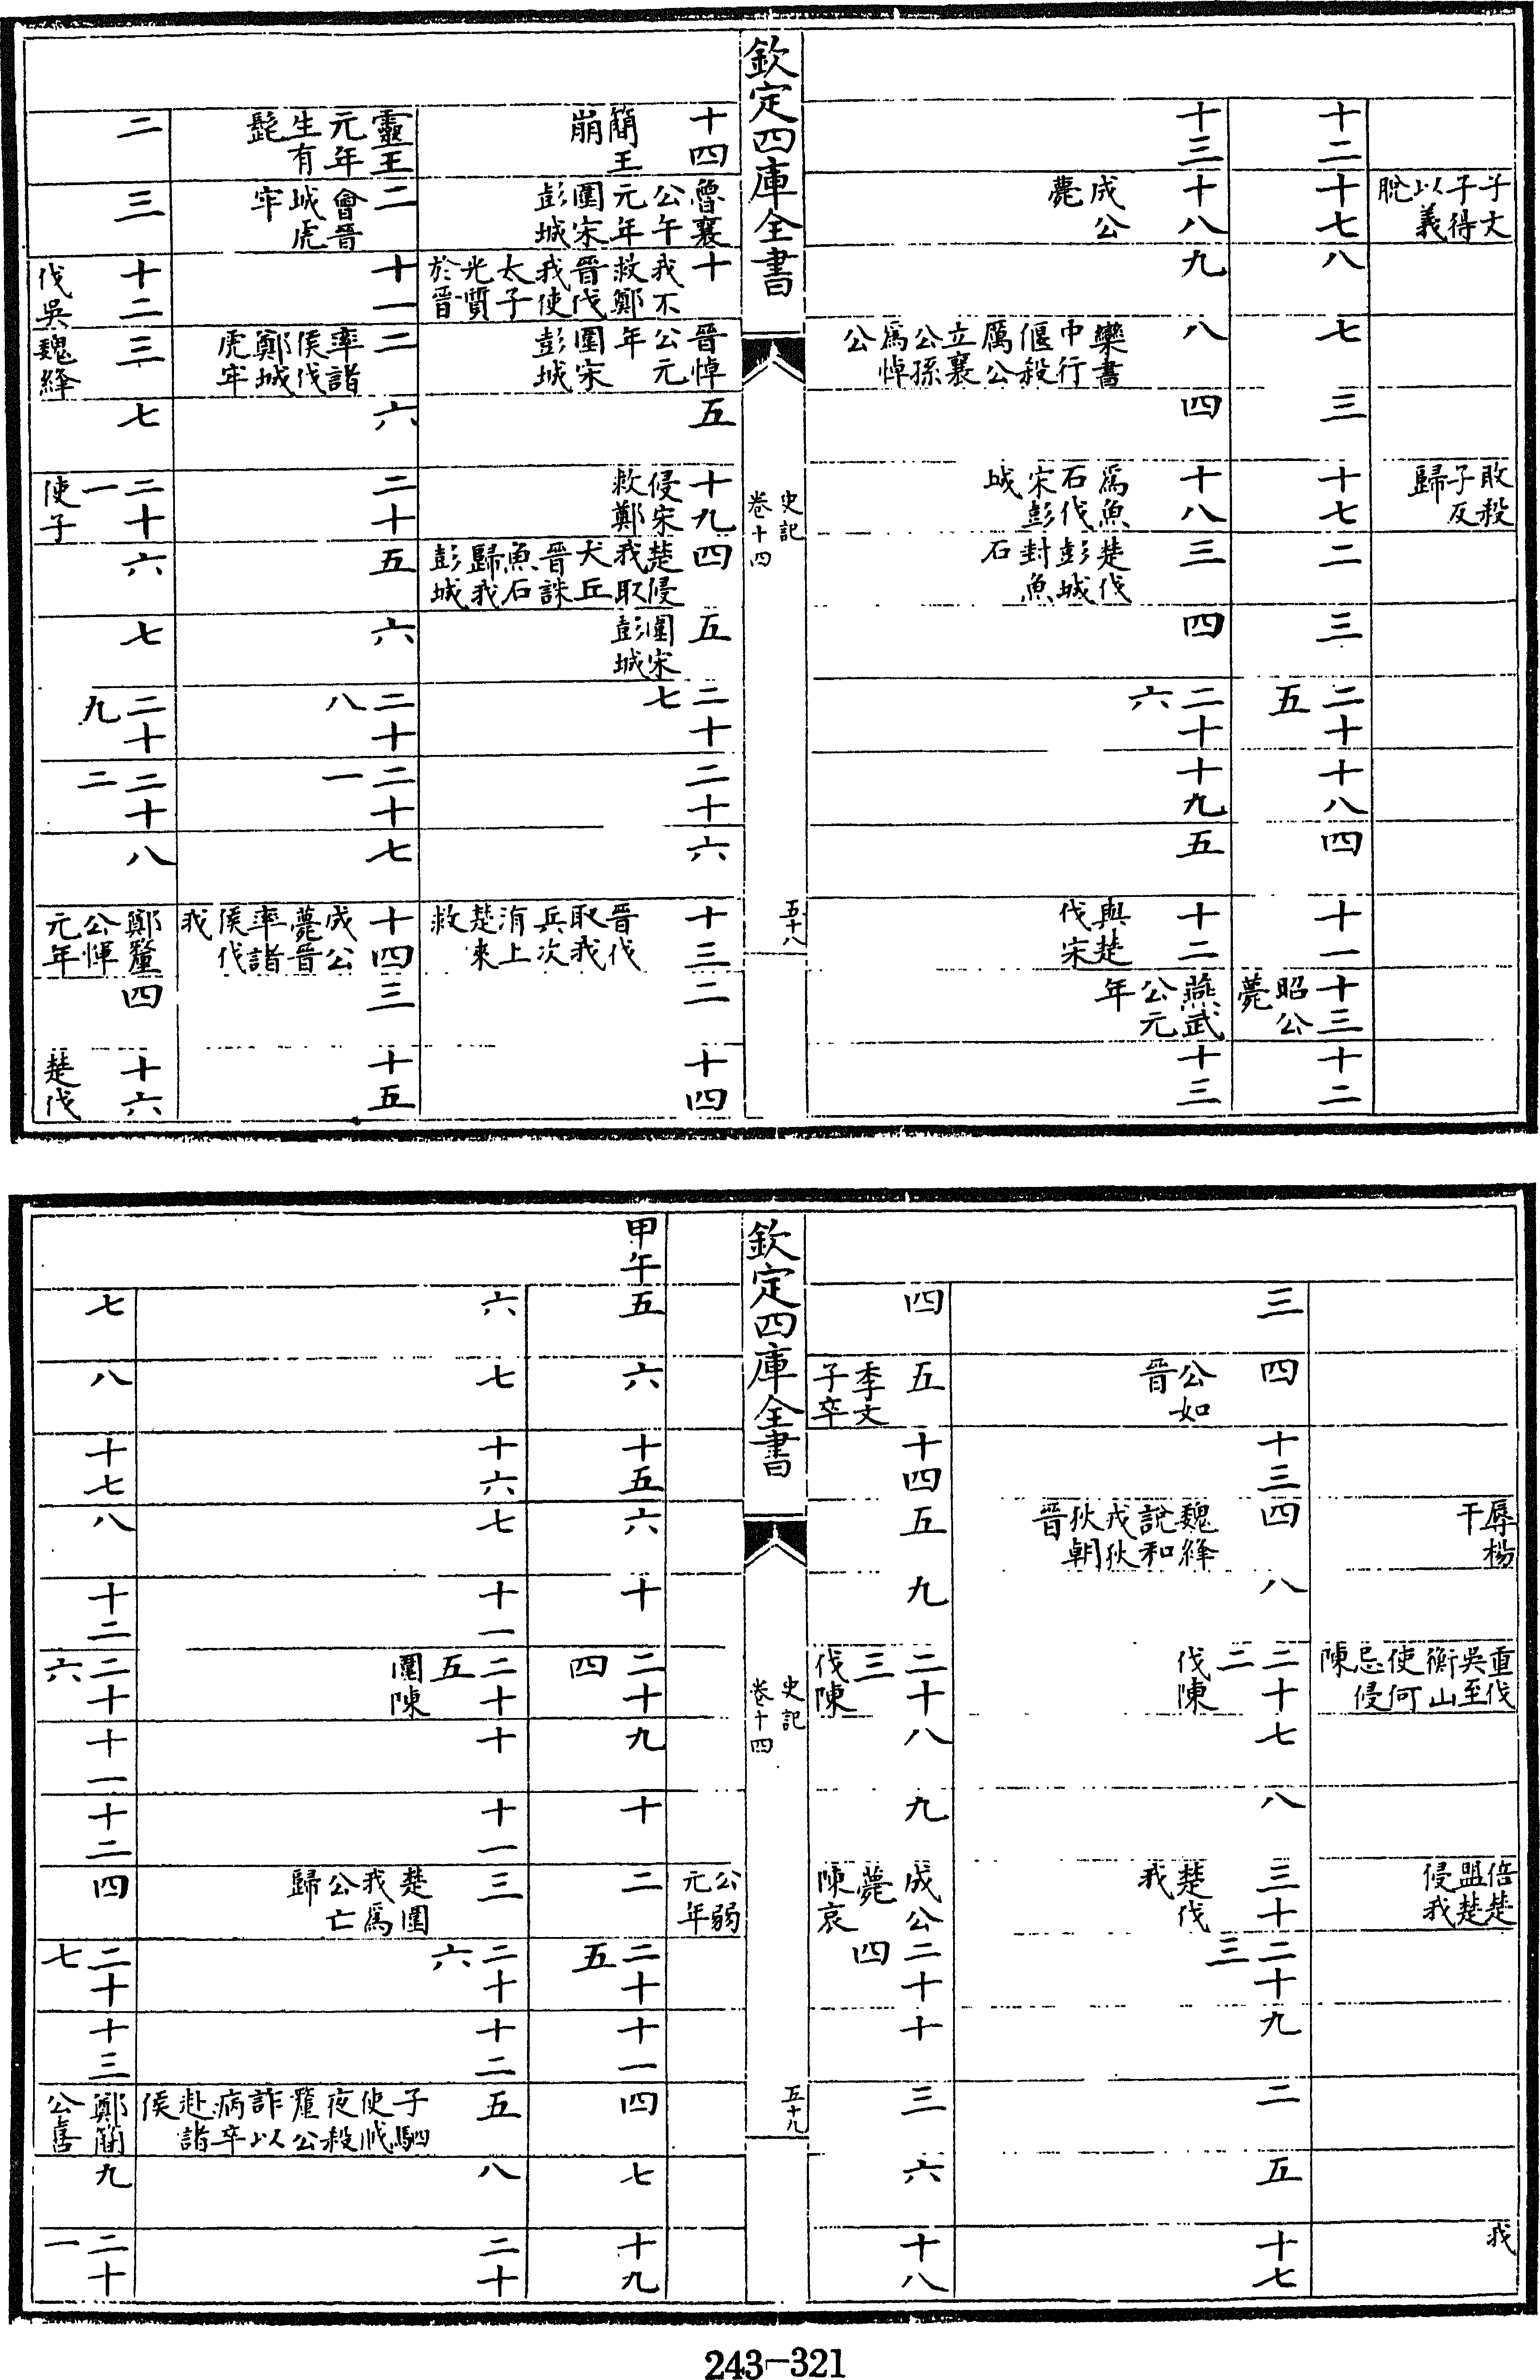 子文子得以義脫
敗殺子反歸
十二
十七
八
七
三
十七
二
三
二十五
十八
四
十一
十三 昭公薨
十二
十三
十八 成公薨
九
八 欒書中行偃殺厲公立襄公孫爲悼公
四
十八 爲魚石伐宋彭城
三 楚伐彭城封魚石
四
二十六
十九
五
十二 與楚伐宋
燕武公元年
十三
欽定四庫全書
史記
卷十四
五十八
十四 簡王崩
魯襄公午元年圍宋彭城
十 我不救鄭晉伐我使太子光質於晉
晉悼公元年圍宋彭城
五
十九 侵宋救鄭
四 楚侵我取犬丘晉誅魚石歸我彭城
五 圍宋彭城
二十七
二十
六
十三 晉伐取我兵次洧上楚來救
二
十四
靈王元年生有髭
二 會晉城虎牢
十一
二 率諸侯伐鄭城虎牢
六
二十
五
六
二十八
二十一
七
十四 成公薨晉率諸侯伐我
三
十五
二
三
十二 伐吳
三 魏絳
七
二十一 使子
六
七
二十九
二十二
八
鄭釐公惲元年
四
十六 楚伐
辱楊干
重伐吳至衡山使何忌侵陳
倍楚盟楚侵我
我
三
四 公如晉
十三
四 魏絳說和戎狄狄朝晉
八
二十二 伐陳
七
八
三十 楚伐我
二十三
九
二
五
十七
四
五 季文子卒
十四
五
九
二十三 伐陳
八
九
成公薨 陳哀
二十四
十
三
六
十八
欽定四庫全書
史記
卷十四
五十九
公弱元年
甲午
五
六
十五
六
十
二十四
九
十
二
二十五
十一
四
七
十九
六
七
十六
七
十一
二十五 圍陳
十
十一
三 楚圍我爲公亡歸
二十六
十二
五 子駟使賊夜殺釐公詐以病卒赴諸侯
八
二十
七
八
十七
八
十二
二十六
十一
十二
四
二十七
十三
鄭簡公喜
九
二十一
243-321